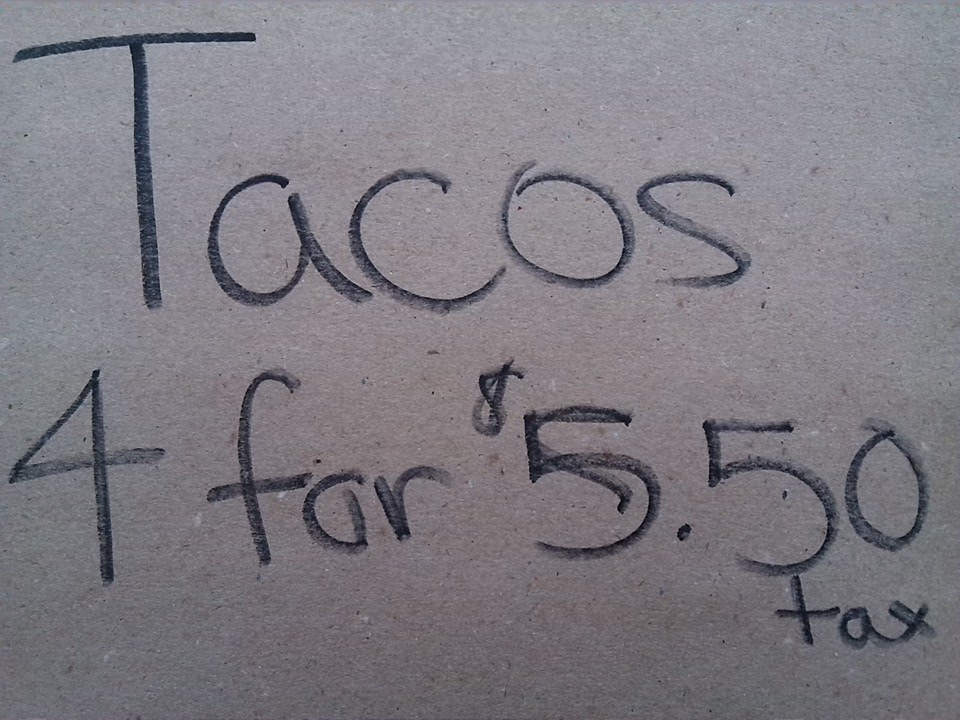 Tacos
4 for $5.50
tax